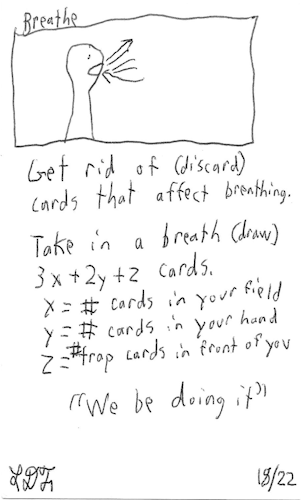 Breathe
Get rid of (discard)
cards that affect breathing.
Take in a breath (draw)
3x+2y+z cards.
x = # cards in your field
y = # cards in your hand
z = # trap cards in front of you
"We be doing it"
18/22